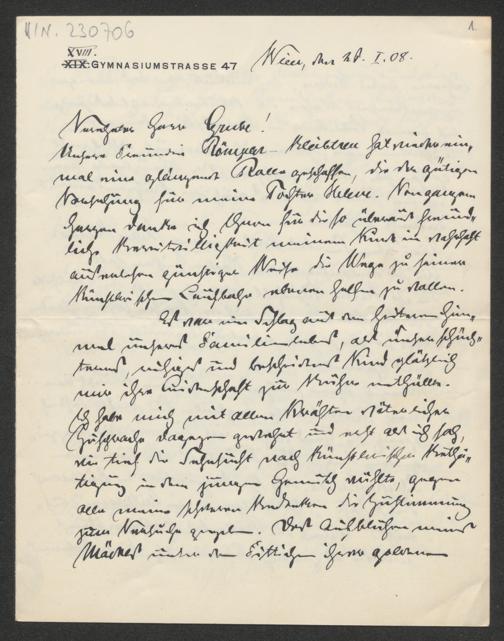 VIN. 230706
1.
XVIII.
XIX. GYMNASIUMSTRASSE 47
Wien, den 28. I. 08.
Verehrter Herr Grube!
Unsere Freundin Römpler-Bleibtreu hat wieder ein-
mal eine glänzende Rolle geschaffen, die der gütigen
Vorsehung für meine Tochter Helene. Von ganzem
Herzen danke ich Ihnen für die so überaus freund-
liche Bereitwilligkeit meinem Kinde in wahrhaft
günstiger Weise die Wege zu seiner
künstlerischen Laufbahn ebenen helfen zu wollen.
Es war ein Schlag aus dem heiteren Him-
mel unseres Familienlebens, als unser schüch-
ternes, ruhiges und bescheidenes Kind plötzlich
mir ihre Leidenschaft zur Bühne enthüllte.
Ich habe mich mit allen Kräften väterlicher
dagegen gewehrt und erst als ich sah,
wie tief die Sehnsucht nach künstlerischer Bethä-
tigung in dem jungen Gemüth wühlte, gegen
alle meine schweren Bedenken die Zustimmung
zum Versuche gegeben. Das Aufblühen meines
Mädels unter den Fittichen ihrer goldenen